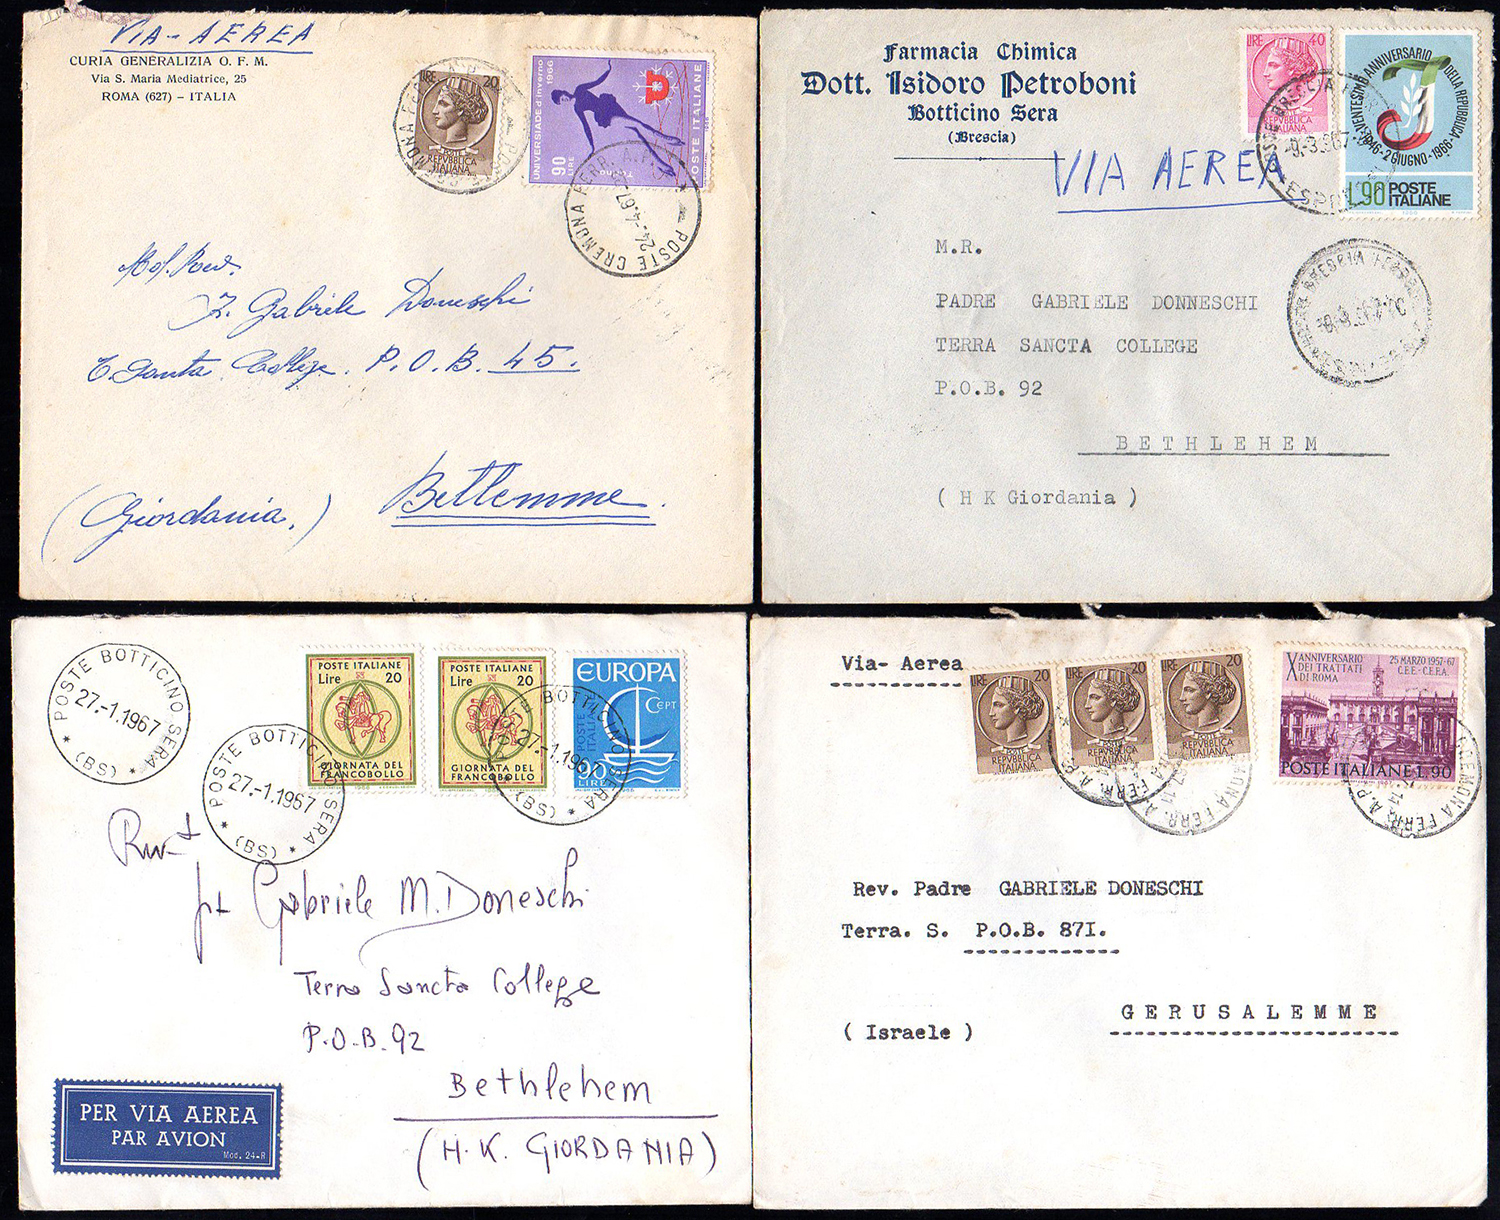 VIA-AEREA
CURIA GENERALIZIA O. F. M.
Via S. Maria Mediatrice, 25
ROMA (627) – ITALIA
LIRE 20
POSTE
REPVBBLICA
ITALIANA
UNIVERSIADE d'inverno 1966
90 LIRE
Torino
POSTE ITALIANE
POSTE CREMONA FERR. A.P.
24.-4.67
Mol. Rev.
Gabriele Doneschi
T. Santa College. P. O. B. 45.
(Giordania.)
Betlemme.
Farmacia Chimica
Dott. Isidoro Petroboni
Botticino Sera
(Brescia)
VIA AEREA
LIRE 40
POSTE
REPVBBLICA
ITALIANA
VENTESIMO ANNIVERSARIO DELLA REPUBBLICA
1946-2 GIUGNO-1966
L.90 POSTE
ITALIANE
M.R.
PADRE GABRIELE DONNESCHI
TERRA SANCTA COLLEGE
P.O.B. 92
BETHLEHEM
( H K Giordania )
POSTE BOTTICINO SERA
27.-1.1967
(BS)
POSTE BOTTICINO SERA
27.-1.1967
(BS)
POSTE ITALIANE
Lire 20
GIORNATA DEL
FRANCOBOLLO
POSTE ITALIANE
Lire 20
GIORNATA DEL
FRANCOBOLLO
EUROPA
CEPT
POSTE ITALIANE
90
LIRE
BOTTICINO SERA
27.-1.1967
(BS)
Gabriele M. Doneschi
Terra Sancta College
P.O.B. 92
Bethlehem
(H.K. GIORDANIA)
PER VIA AEREA
PAR AVION
Mod. 24-R
Via- Aerea
LIRE 20
POSTE
REPVBBLICA
ITALIANA
LIRE 20
POSTE
REPVBBLICA
ITALIANA
LIRE 20
POSTE
REPVBBLICA
ITALIANA
X ANNIVERSARIO
DEI TRATTATI
DI ROMA
25 MARZO 1957-67
C.E.E.-C.E.E.A.
POSTE ITALIANE L.90
CREMONA FERR. A.P.
Rev. Padre GABRIELE DONESCHI
Terra. S. P.O.B. 87I.
GERUSALEMME
( Israele )